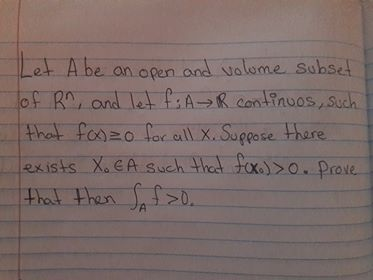 Let A be an open and volume subset
of Rⁿ, and let f: A→ℝ continuos, such
that f(x)≥0 for all x. Suppose there
exists X₀ ∈ A such that f(x₀)>0. Prove
that then ∫_A f>0.